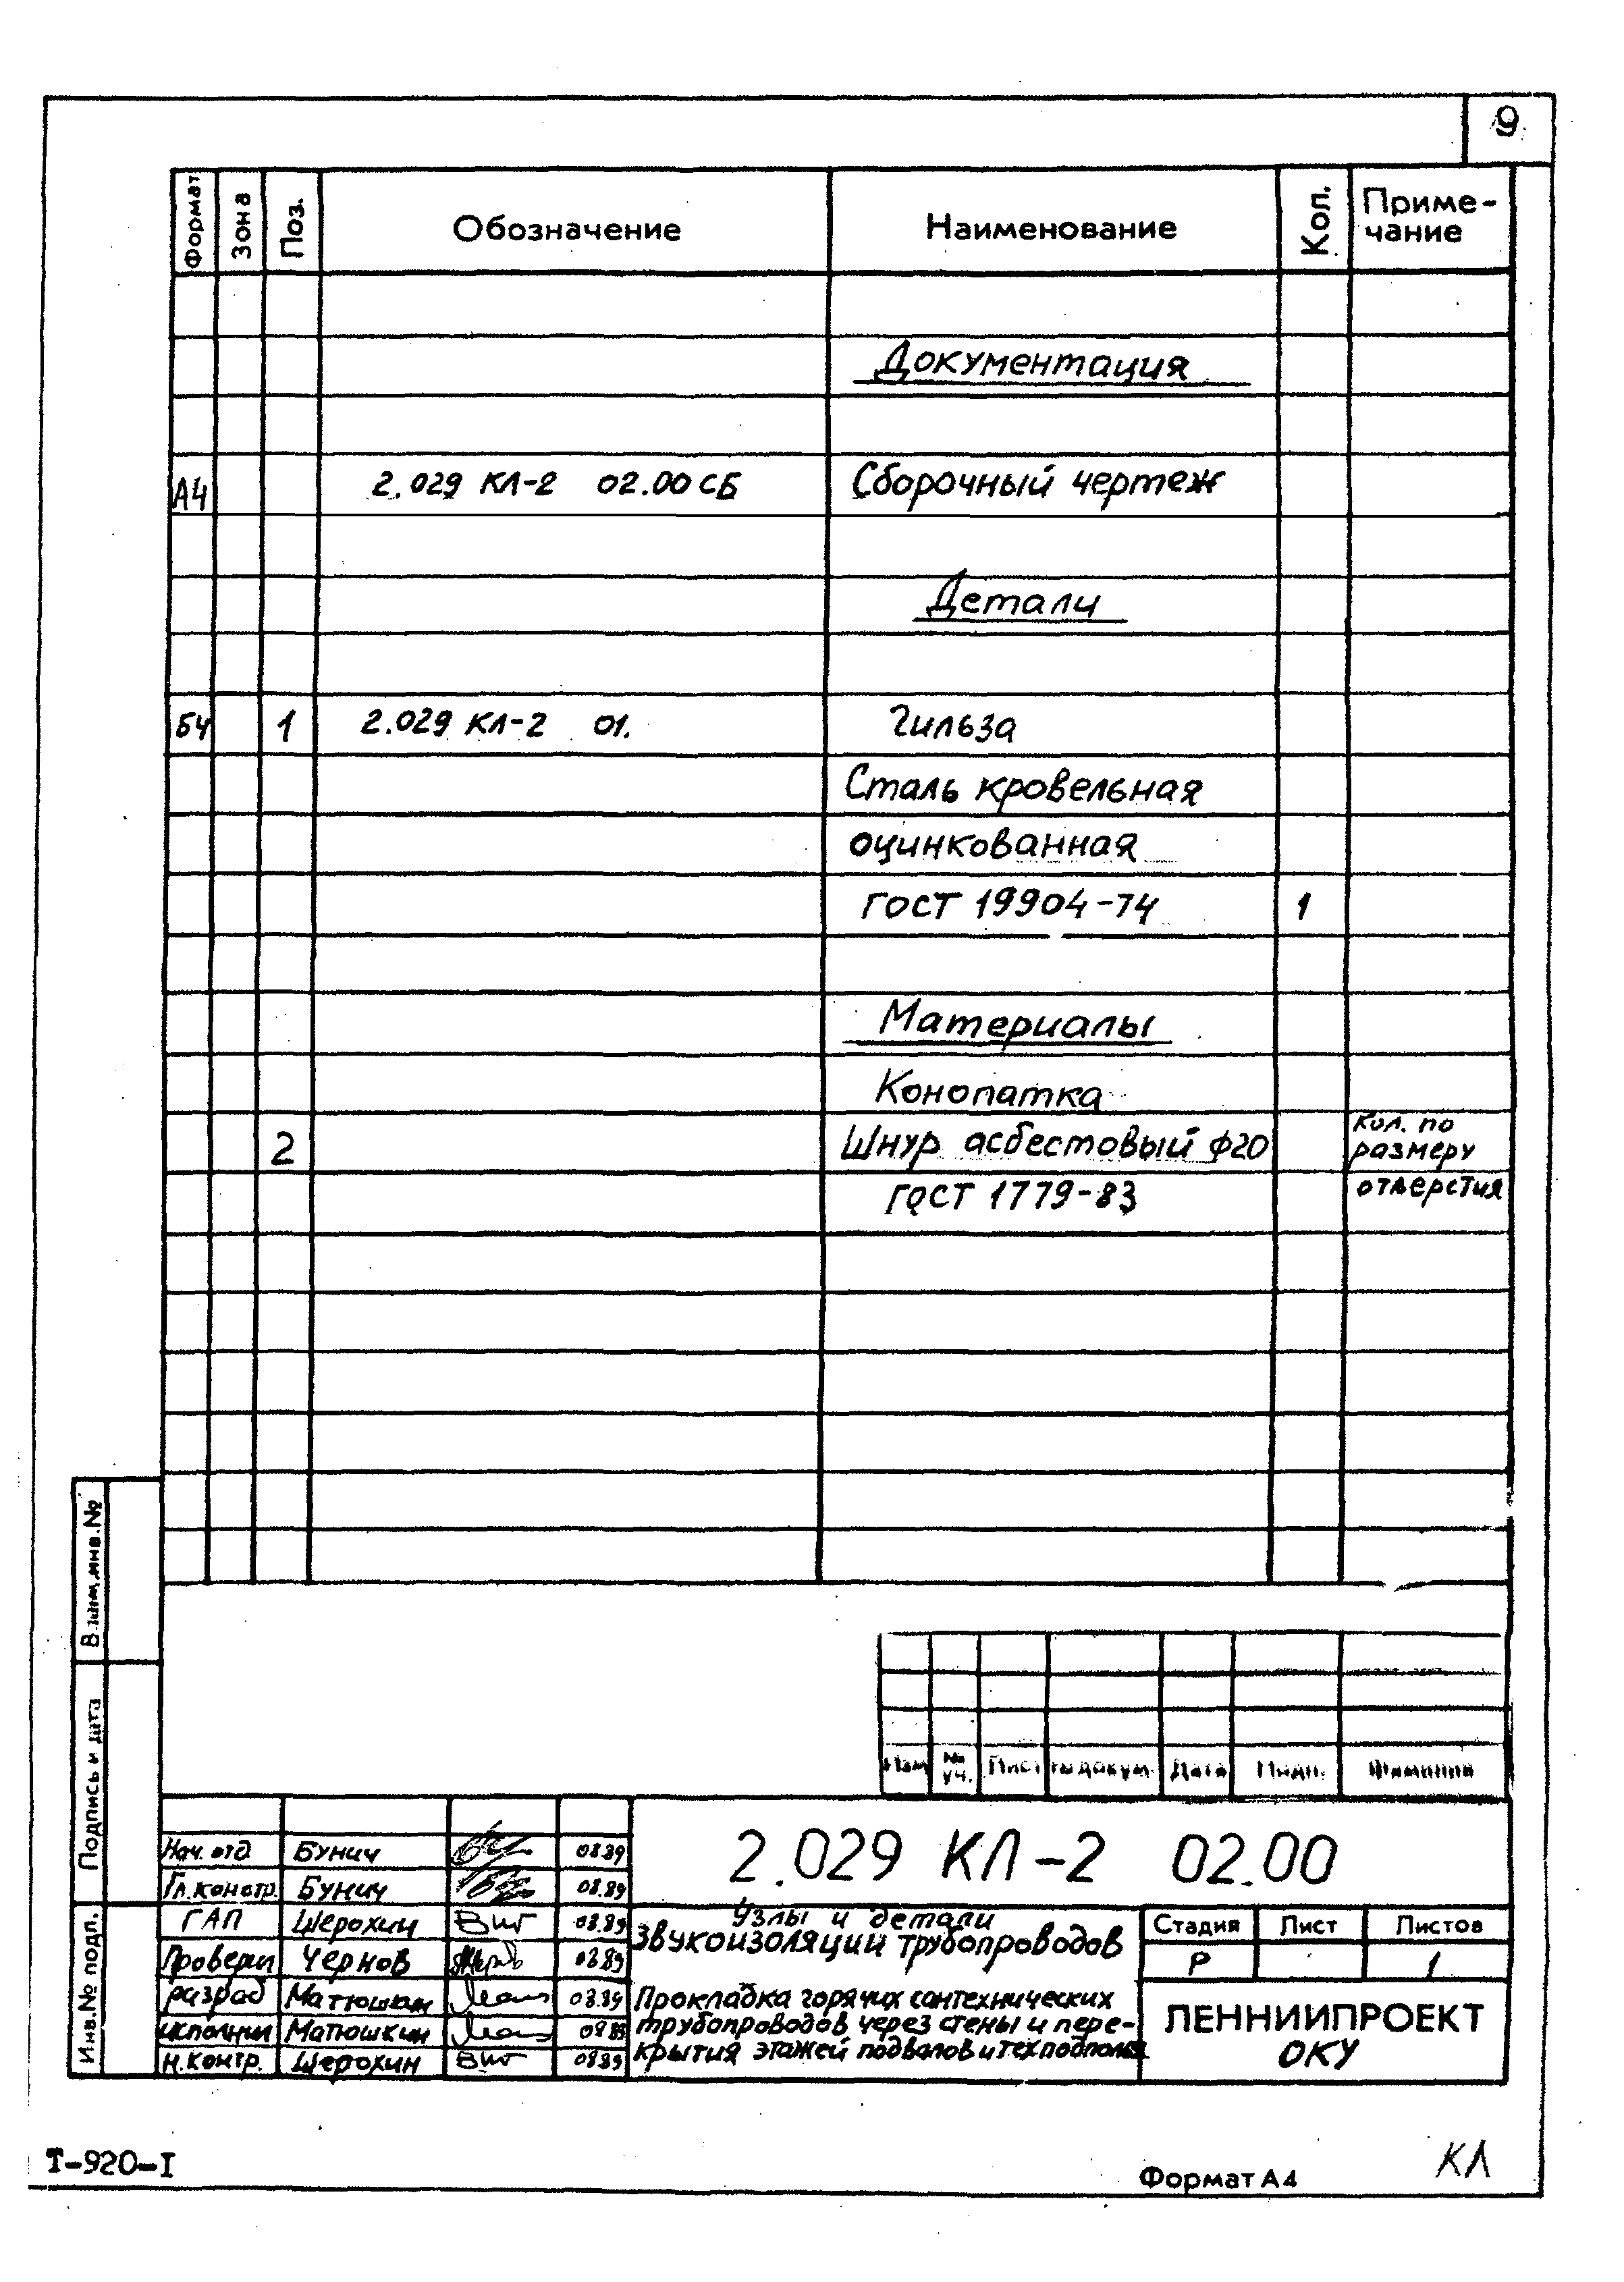 9
Формат Зона Поз. Обозначение Наименование Кол. Приме-
чание
Документация
А4 2.029 КЛ-2 02.00 СБ Сборочный чертеж
Детали
БЧ 1 2.029 КЛ-2 01. Гильза
Сталь кровельная
оцинкованная
ГОСТ 19904-74 1
Материалы
Конопатка
2 Шнур асбестовый ф20 Кол. по
размеру
ГОСТ 1779-83 отверстия
Взам.инв.№
Подпись и дата
Инв.№ подл.
Изм № уч. Лист № докум. Дата Подп. Фамилия
2.029 КЛ-2 02.00
Нач. отд Бунич 08.89
Гл.констр. Бунич 08.89
ГАП Шерохин 08.89
Проверил Чернов 08.89
разраб Матюшкин 08.89
исполнил Матюшкин 08.89
Н.контр. Шерохин 08.89
Узлы и детали
звукоизоляции трубопроводов
Прокладка горячих сантехнических
трубопроводов через стены и пере-
крытия этажей подвалов и техподполья
Стадия Лист Листов
Р 1
ЛЕННИИПРОЕКТ
ОКУ
Т-920-I
Формат А4
КЛ